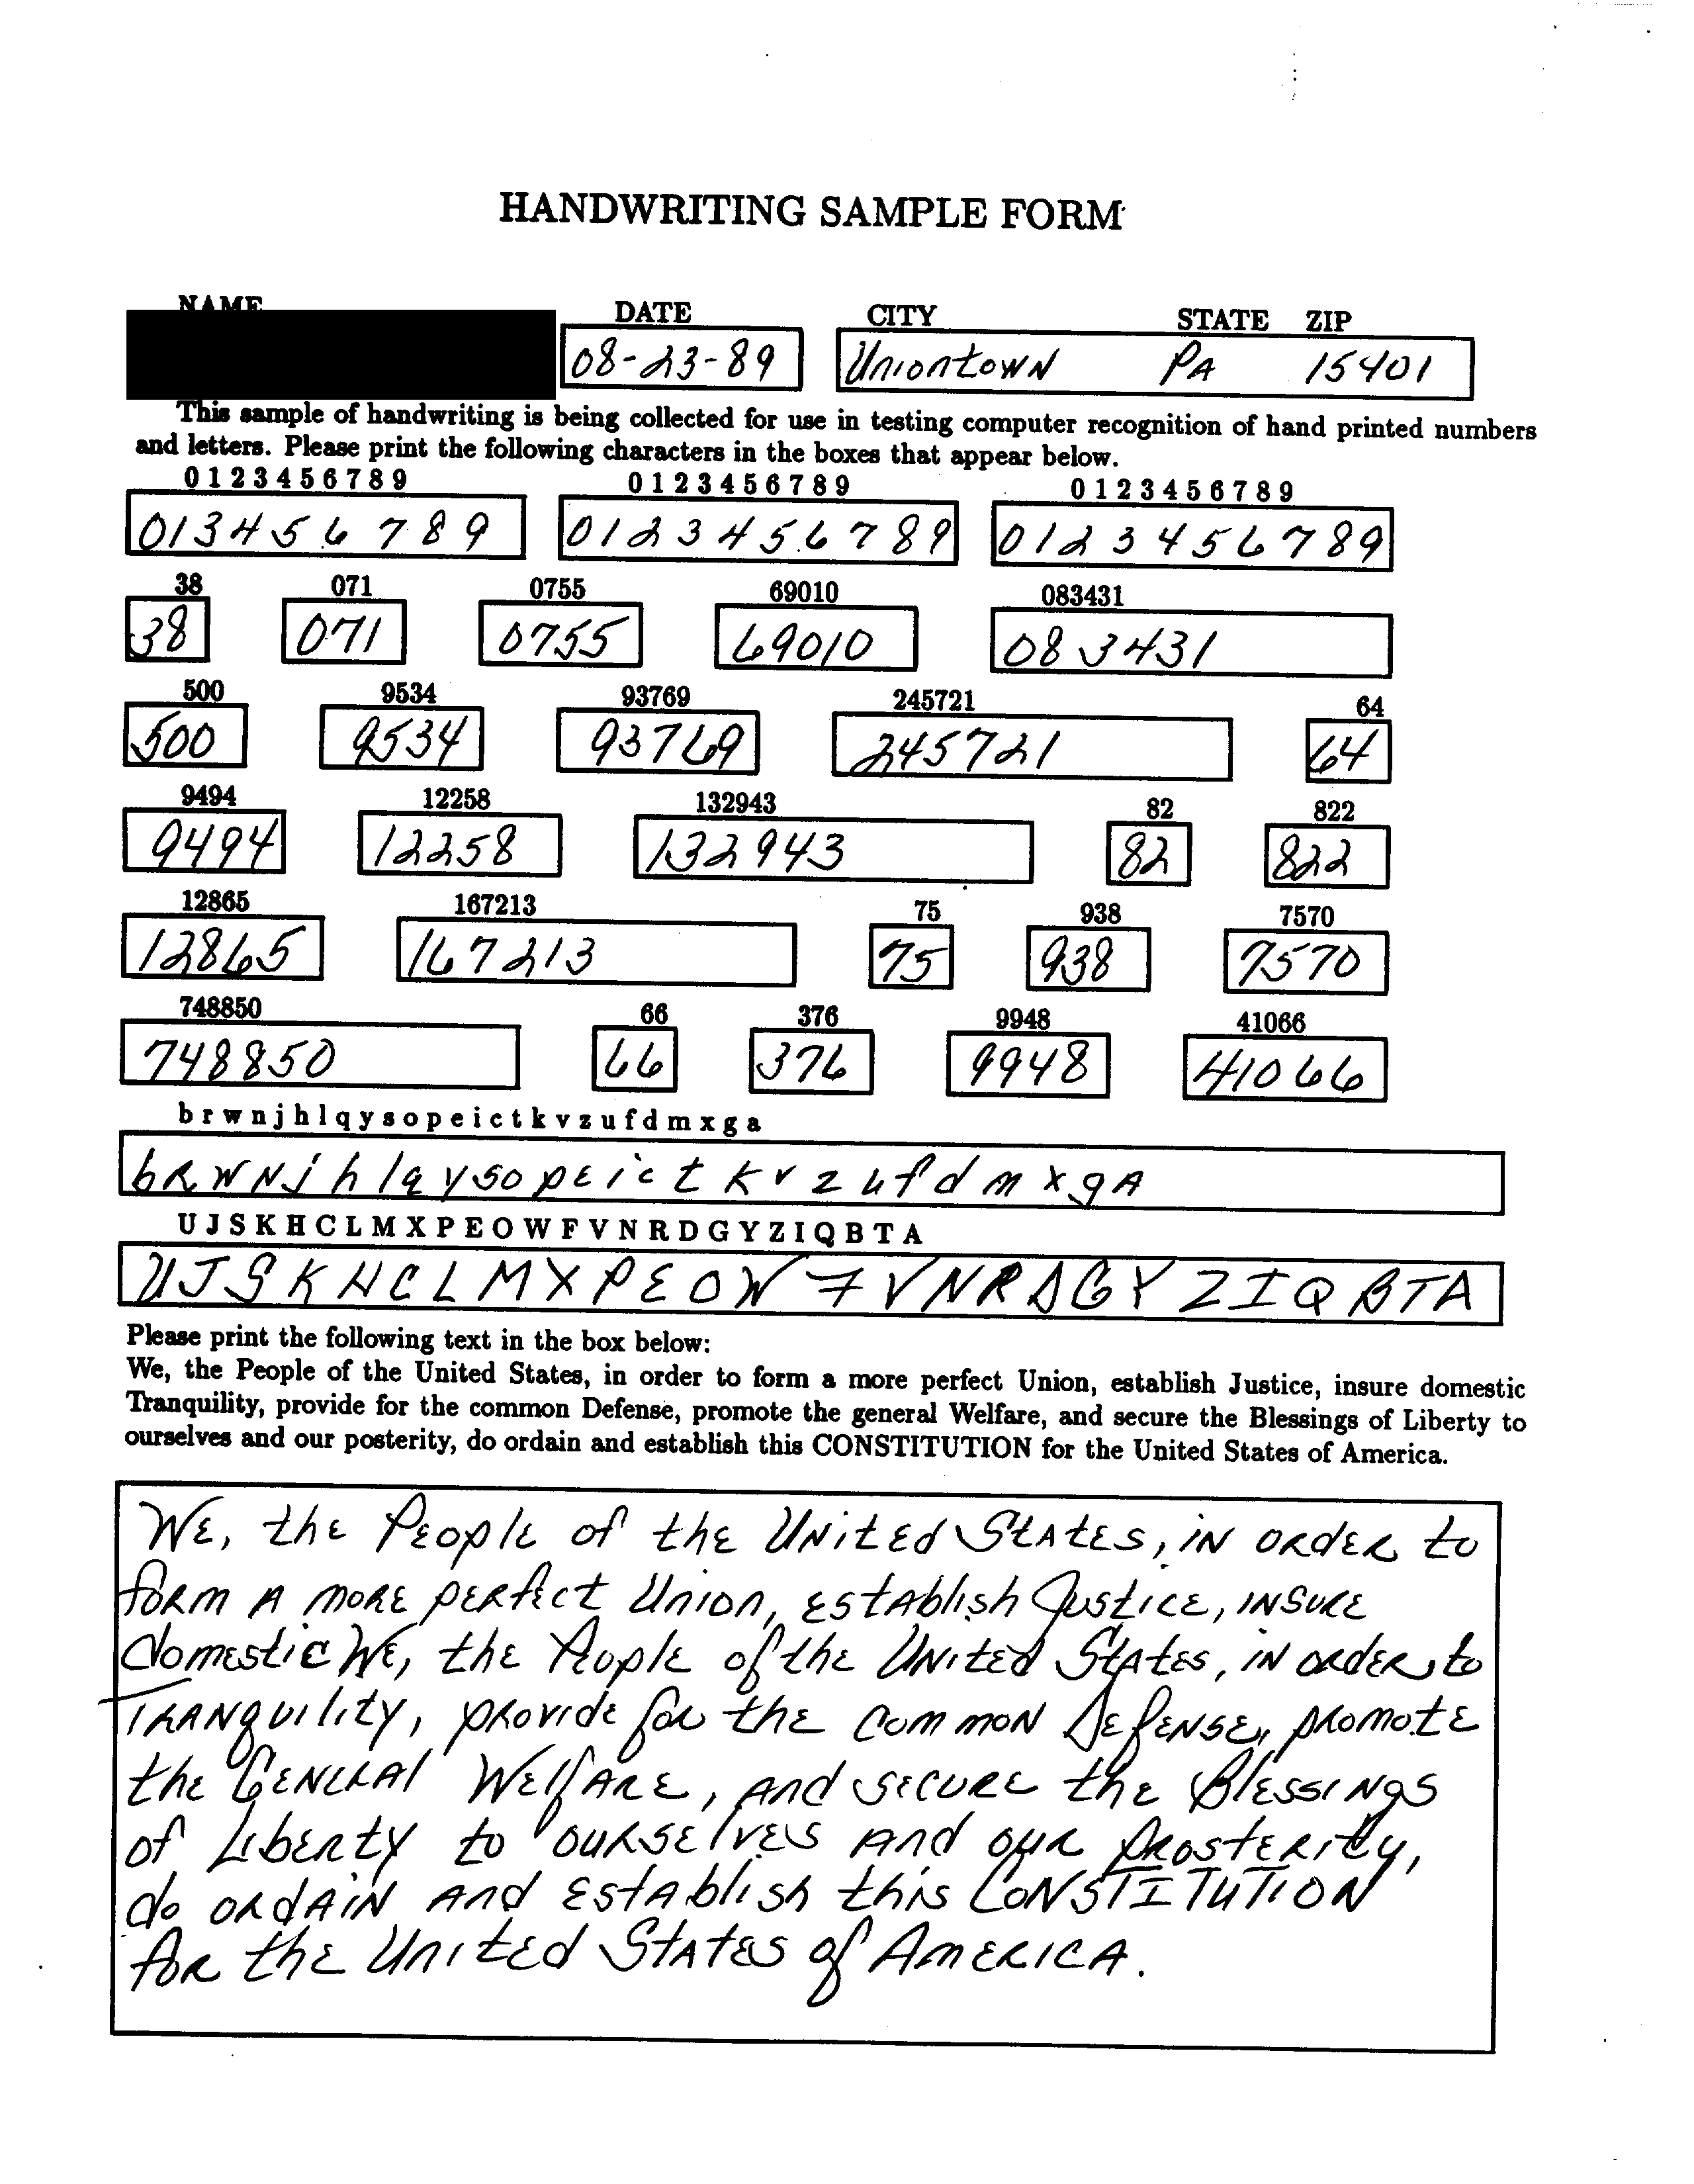 HANDWRITING SAMPLE FORM
NAME DATE CITY STATE ZIP
08-23-89 Uniontown PA 15401
This sample of handwriting is being collected for use in testing computer recognition of hand printed numbers
and letters. Please print the following characters in the boxes that appear below.
0 1 2 3 4 5 6 7 8 9 0 1 2 3 4 5 6 7 8 9 0 1 2 3 4 5 6 7 8 9
0 1 3 4 5 6 7 8 9 0 1 2 3 4 5 6 7 8 9 0 1 2 3 4 5 6 7 8 9
38 071 0755 69010 083431
38 071 0755 69010 083431
500 9534 93769 245721 64
500 9534 93769 245721 64
9494 12258 132943 82 822
9494 12258 132943 82 822
12865 167213 75 938 7570
12865 167213 75 938 7570
748850 66 376 9948 41066
748850 66 376 9948 41066
b r w n j h l q y s o p e i c t k v z u f d m x g a
b R W N j h l q y s o p E i c t k v z u f d m x g A
U J S K H C L M X P E O W F V N R D G Y Z I Q B T A
U J S K H C L M X P E O W F V N R D G Y Z I Q B T A
Please print the following text in the box below:
We, the People of the United States, in order to form a more perfect Union, establish Justice, insure domestic
Tranquility, provide for the common Defense, promote the general Welfare, and secure the Blessings of Liberty to
ourselves and our posterity, do ordain and establish this CONSTITUTION for the United States of America.
WE, thE PEoplE of thE UNitEd StAtES, iN oRdER to
foRm A moRE pERfEct Union, EStAblish JusticE, INSURE
domEstic WE, thE PEoplE of thE UNitEd StAtEs, iN oRdER to
TRANquility, pRovidE foR thE common DEfENSE, pRomotE
thE GENERAl WElfARE, And SECURE thE BlESSINgS
of LibERty to ouRSElvES And ouR PRoStERity,
do oRdAiN And EStAblish this CONSTITUTION
foR thE UnitEd StAtES of AmERICA.